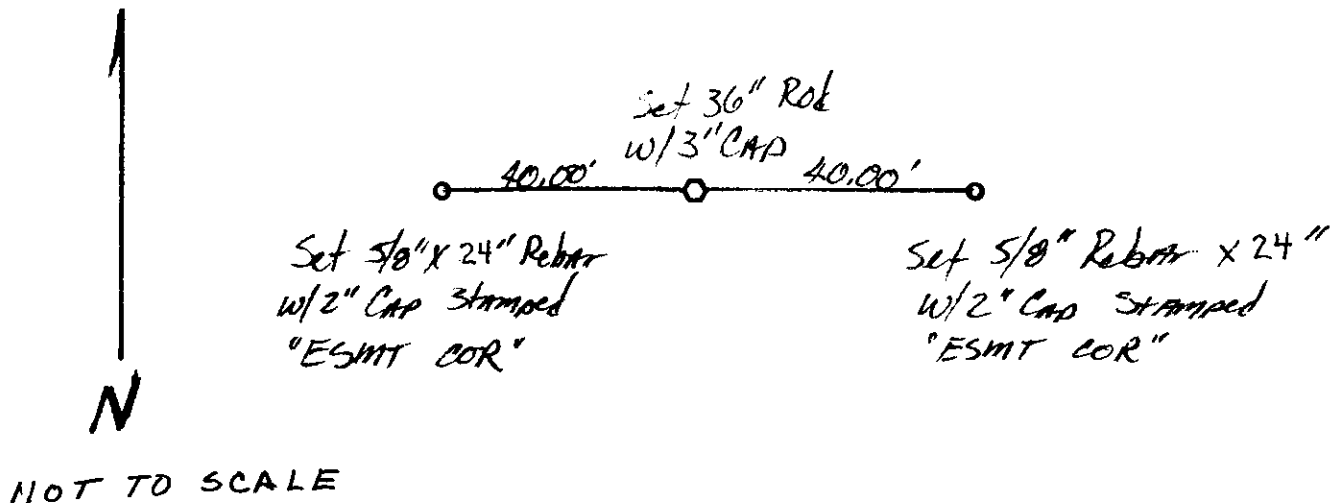 Set 36" Rod
w/3" CAP
40.00' 40.00'
Set 5/8" X 24" Rebar
w/2" CAP Stamped
"ESMT COR"
Set 5/8" Rebar x 24"
w/2" CAP Stamped
"ESMT COR"
N
NOT TO SCALE